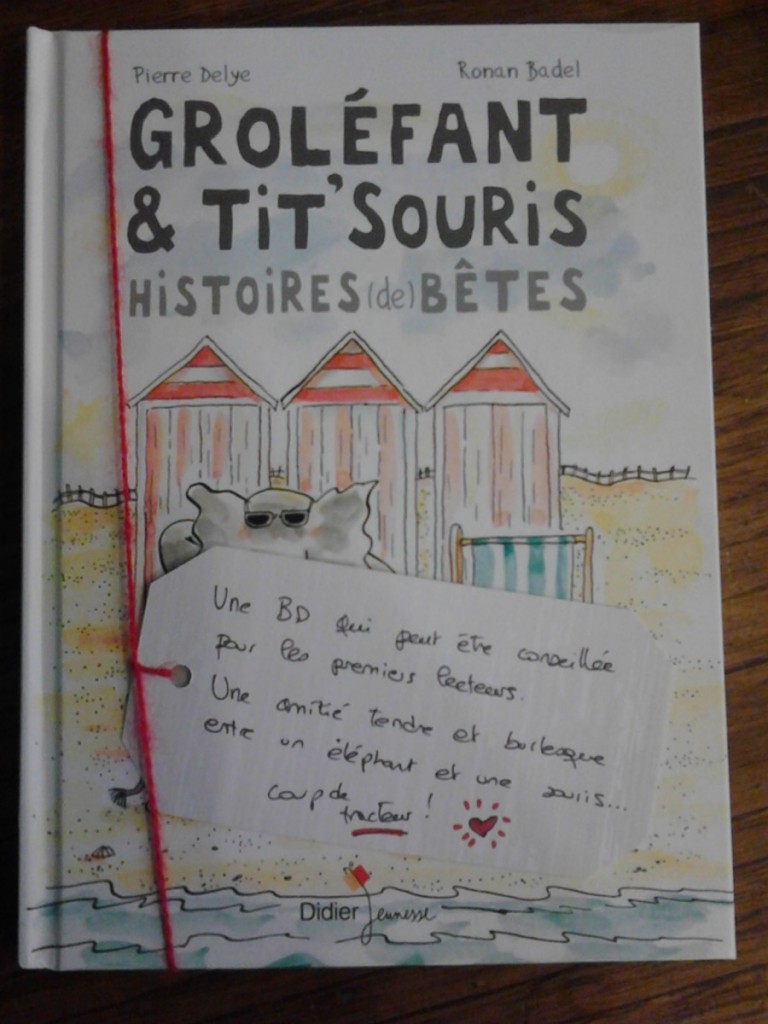 Pierre Delye Ronan Badel
GROLÉFANT
& TiT'SOURiS
HiSTOiRES (de) BÊTES
Une BD qui peut être conseillée
pour les premiers lecteurs.
Une amitié tendre et burlesque
entre un éléphant et une souris...
coup de
tracteur !
Didier Jeunesse